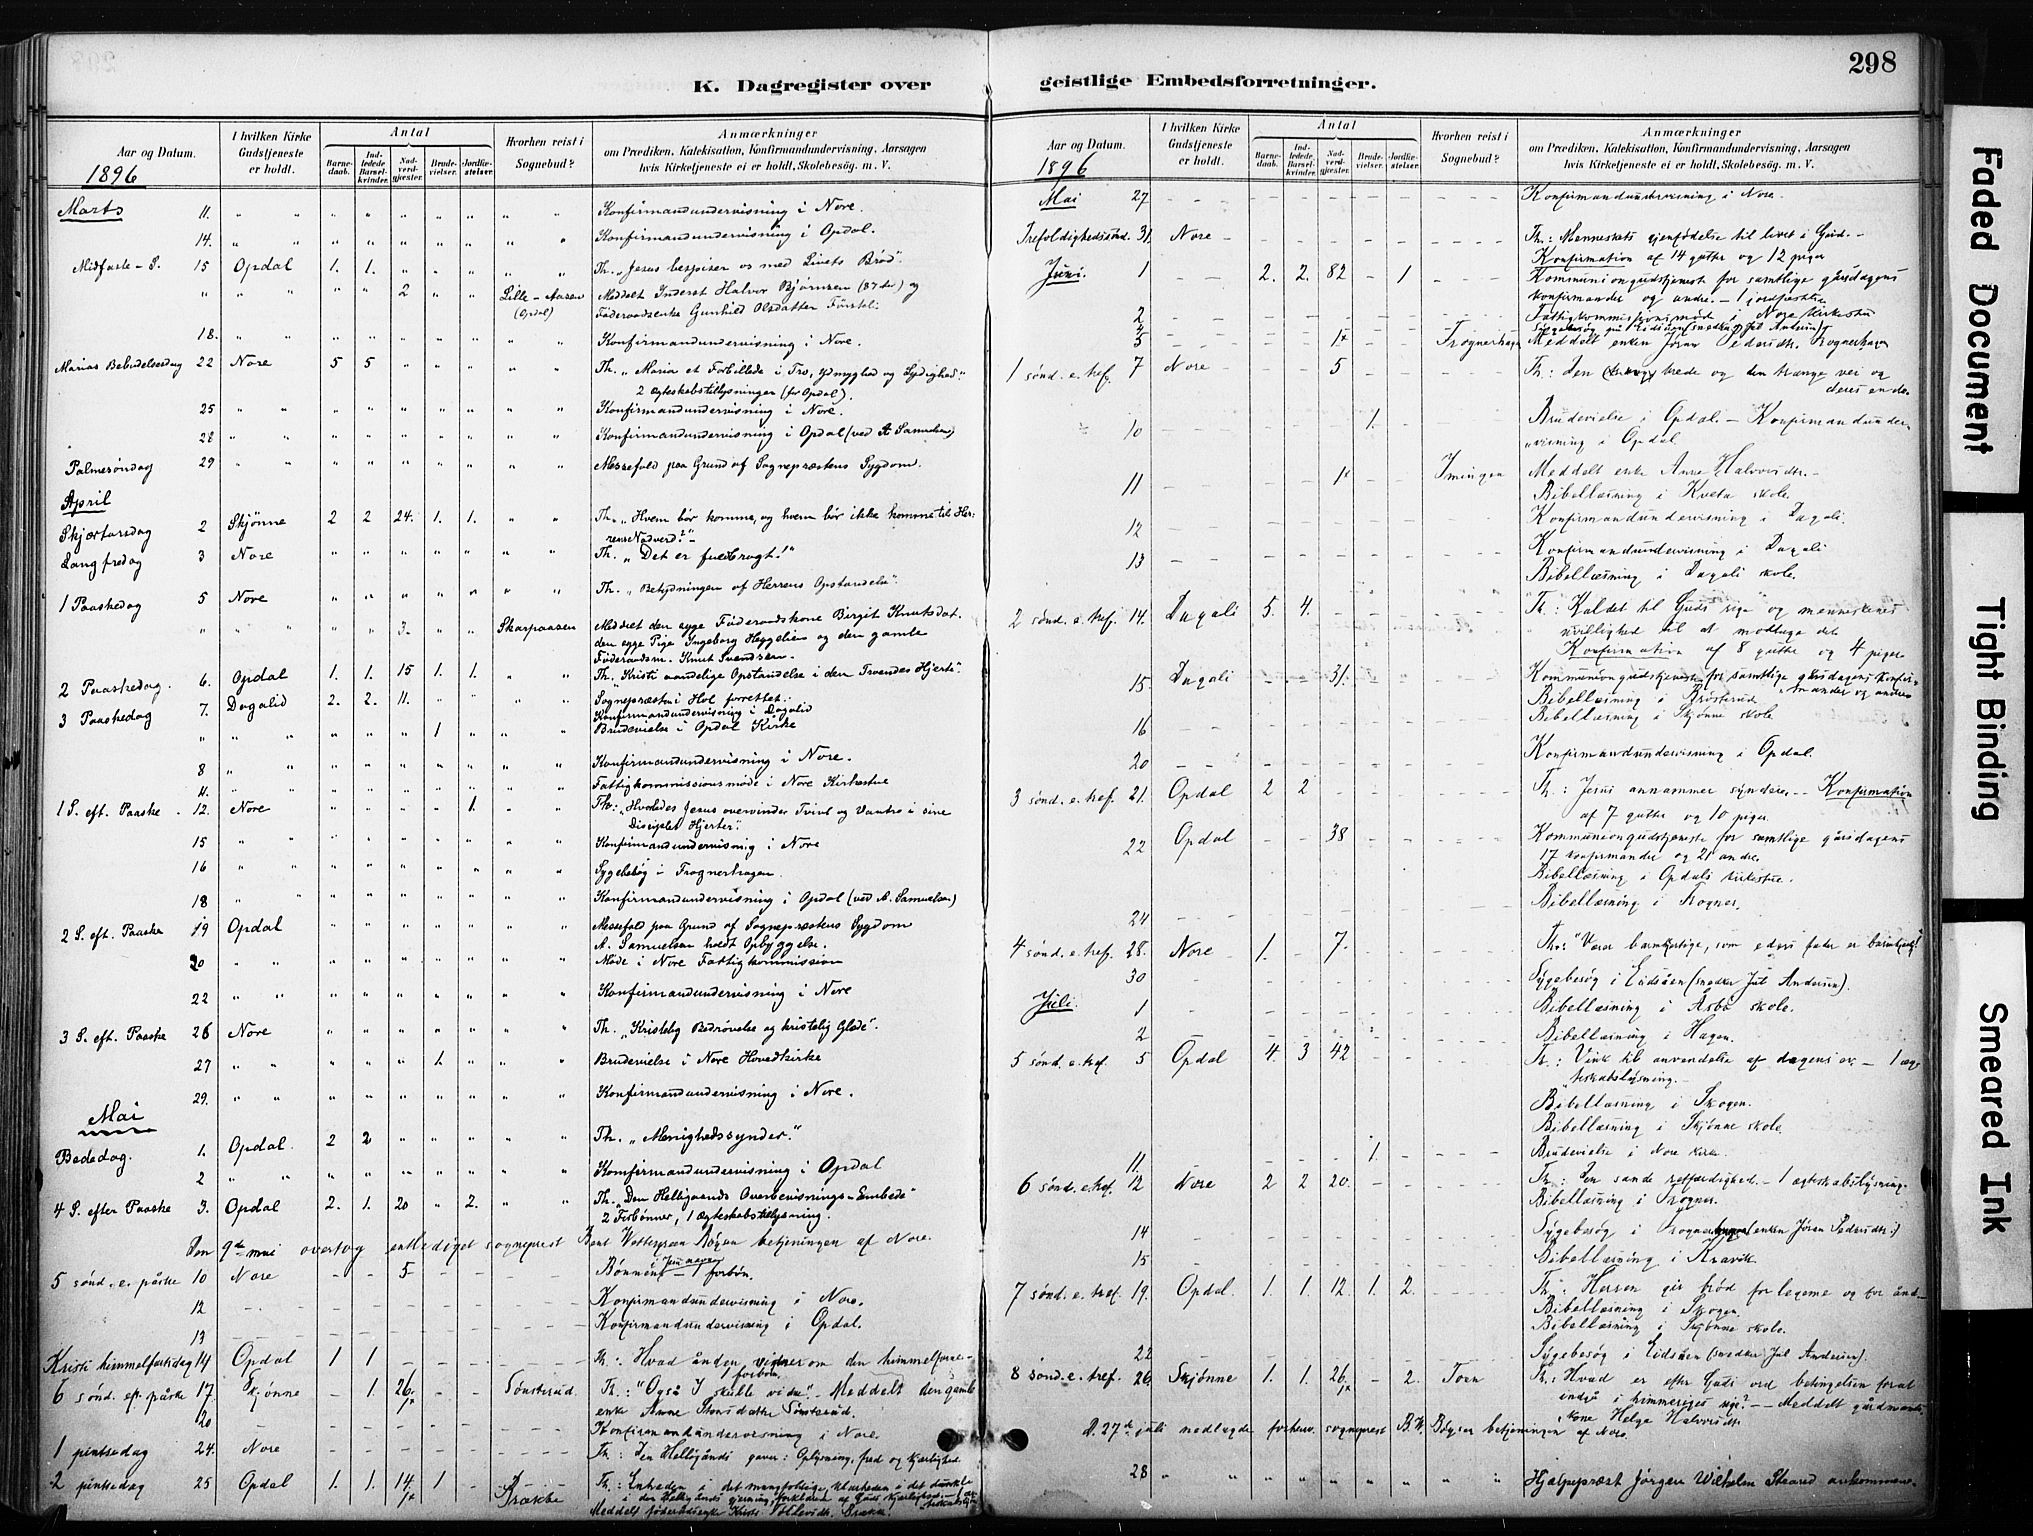 298
K. Dagregister over
geistlige Embedsforretninger.
Aar og Datum.
I hvilken Kirke Gudstjeneste er holdt.
Antal
Barnedaab.
Indledede Barselkvinder.
Nadverdgjester.
Brudevielser.
Jordfæstelser.
Hvorhen reist i Sognebud?
Anmærkninger
om Prædiken, Katekisation, Konfirmandundervisning, Aarsagen
hvis Kirketjeneste ei er holdt, Skolebesøg. m. V.
1896
Marts 11. Konfirmandundervisning i Nore.
14. Konfirmandundervisning i Opdal.
Midfaste-S. 15 Opdal 1. 1. Th. "Jesus bespiser os med Livets Brød".
2 Lille-Aasen (Opdal) Meddelt Inderst Halvor Bjørnsen (87 år) og
Føderaadsenke Gunhild Olsdatter
18. Konfirmandundervisning i Nore.
Marias Bebudelsesdag 22 Nore 5 5 Th. "Maria et Forbillede i Tro, Ydmyghed og Lydighed."
2 Ægteskabstillysninger (for Opdal).
25 Konfirmandundervisning i Nore.
28 Konfirmandundervisning i Opdal (ved A Samuelsen)
Palmesøndag 29 Messefald paa Grund af Sognepræstens Sygdom.
April
Skjærtorsdag 2 Skjønne 2 2 24. 1. 1. Th. "Hvem bør komme, og hvem bør ikke komme til Her-
rens Nadverd?"
Langfredag 3 Nore Th. "Det er fuldbragt!"
1 Paaskedag 5 Nore Th. "Betydningen af Herrens Opstandelse".
3. Skarpaasen Meddelt den syge Føderaadskone Birgit Knutsdat.
den syge Pige Ingeborg Heggelien og den gamle
Føderaadsm. Knut Svendsen.
2 Paaskedag. 6. Opdal 1. 1. 15 1. 1. Th. "Kristi aandelige Opstandelse i den Troendes Hjerte".
3 Paaskedag 7. Dagalid 2. 2. 11. Sognepræsten i Hol forrettet.
Konfirmandundervisning i Dagalid
1 Brudevielse i Opdal Kirke
8 Konfirmandundervisning i Nore.
11. Fattigkommissionsmøde i Nore Kirkestue
1 S. eft. Paaske 12. Nore 1. Th: "Hvorledes Jesus overvinder Tvivl og Vantro i sine
Disciples Hjerter".
15 Konfirmandundervisning i Nore
16 Sygebesøg i Frognerhagen.
18 Konfirmandundervisning i Opdal (ved A. Samuelsen)
2 S. eft. Paaske 19 Opdal Messefald paa Grund af Sognepræstens Sygdom
A. Samuelsen holdt Opbyggelse.
20 Møde i Nore Fattigkommission
22 Konfirmandundervisning i Nore
3 S. eft. Paaske 26 Nore Th. "Kristelig Bedrøvelse og kristelig Glæde".
27 1. Brudevielse i Nore Hovedkirke
29. Konfirmandundervisning i Nore.
Mai
Bededag. 1. Opdal. 2 2 Th. "Menighedssynder."
2 Konfirmandundervisning i Opdal
4 S. efter Paaske 3. Opdal 2. 1. 20 2. Th. "Den Helligaands Overbevisnings-Embede"
2 Forbønner, 1 Ægteskabstillysning.
Den 9de mai overtog entlediget sogneprest Bøgen betjeningen af Nore.
5 sønd. e. påske 10 Nore 5 Bønnen i Jesu navn - 1 forbøn.
12 Konfirmandundervisning i Nore.
13 Konfirmandundervisning i Opdal.
Kristi himmelfartsdag 14 Opdal 1 1 Th: Hvad ånden vidner om den himmelfarne-
1 forbøn.
6 sønd. eft. påske 17. Skjønne 1. 26. 1x Sønsterud. Th: "Også I skulle vidne". Meddelt den gamle
enke Anne Sønsterud.
20 Konfirmandundervisning i Nore.
1 pintsedag 24. Nore Th: Den Helligånds gaver: Oplysning, fred og kjærlighed
2 pintsedag 25 Opdal 1. 1. 14 1x 1 Brække Th: Enheden i det mangfoldige, klarheden i det dunkle
i den Helligånds gjerning,
Meddelt Brække
1896
Mai 27 Konfirmandundervisning i Nore.
Trefoldighedssønd. 31. Nore Th: Menneskets gjenfødelse til livet i Gud.
Konfirmation af 14 gutter og 12 piger
Juni. 1 2. 2. 82 1 Kommuniongudstjenest for samtlige gårsdagens
konfirmander og andre. - 1 jordfæstelse
2 Fattigkommissionsmøde i Nore kirkestue
4 Sygebesøg på Eidsåen (snedker Jul Andersen)
5 1x Frognerhagen Meddelt enken Jøran Pedersdtr. Frognerhagen
1 sønd. e. tref. 7 Nore 5 Th: Den brede og den trange vei og
deres ende.
10 1. Brudevielse i Opdal. - Konfirmandunder-
visning i Opdal
11 1x Imingen Meddelt enke Anne Halvorsdtr.
Bibellæsning i Kveta skole.
12 Konfirmandundervisning i Dagali.
13 Konfirmandundervisning i Dagali
Bibellæsning i Dagali skole.
2 sønd. e. tref. 14. Dagali 5. 4. Th: Kaldet til Guds rige og menneskenes
uvillighed til at modtage det
Konfirmation af 8 gutter og 4 piger
15. Dagali 31. Kommuniongudstjeneste for samtlige gårsdagens konfir-
mander og andre
Bibellæsning i Brøsterud
16 Bibellæsning i Skjønne skole
20 Konfirmandundervisning i Opdal.
3 sønd. e. tref. 21. Opdal 2 2 Th: Jesus annammer syndere. - Konfirmation
af 7 gutter og 10 piger
22 Opdal 38 Kommuniongudstjeneste for samtlige gårsdagens
17 konfirmander og 21 andre.
Bibellæsning i Opdals kirkestue.
24 Bibellæsning i Frogner.
4 sønd. e. tref. 28. Nore 1. 7. Th: "Værer barmhjertige, som eders fader er barmhjertig"
30 Sygebesøg i Eidsåen (snedker Jul Andersen).
Juli. 1 Bibellæsning i Åsbø skole.
2 Bibellæsning i Hagen.
5 sønd. e. tref. 5 Opdal 4. 3 42 Th: Vink til anvendelse af dagens ev. - 1 æg-
teskabslysning.
Bibellæsning i Skogen.
Bibellæsning i Skjønne skole.
11. 1. Brudevielse i Nore kirke
6 sønd. e. tref. 12 Nore 2 2 20. Th: Den sande retfærdighed. - 1 ægteskabslysning.
Bibellæsning i Frogner.
14 Sygebesøg i Frognerhagen (enken Jøran Pedersdtr.)
15 Bibellæsning i Kravik.
7 sønd. e. tref. 19. Opdal. 1. 1. 12. 1. 2. Th: Herren gir brød for legeme og for ånd.
Bibellæsning i Skogen.
Bibellæsning i Skjønne skole.
22 Sygebesøg i Eidsåen (snedker Jul Andersen).
8 sønd. e. tref. 26. Skjønne 1. 1. 26. 1x 2. Toen Th: Hvad er efter Guds ord betingelsen for at
indgå i himmeriges rige? - Meddelt gårdmands-
kone Helga Halvorsdtr.
D. 27de juli nedlagde forhenv. sogneprest B. W. Bøgen betjeningen af Nore.
28 Hjælpeprest Jørgen Wilhelm Strand ankommen.
Faded Document
Tight Binding
Smeared Ink